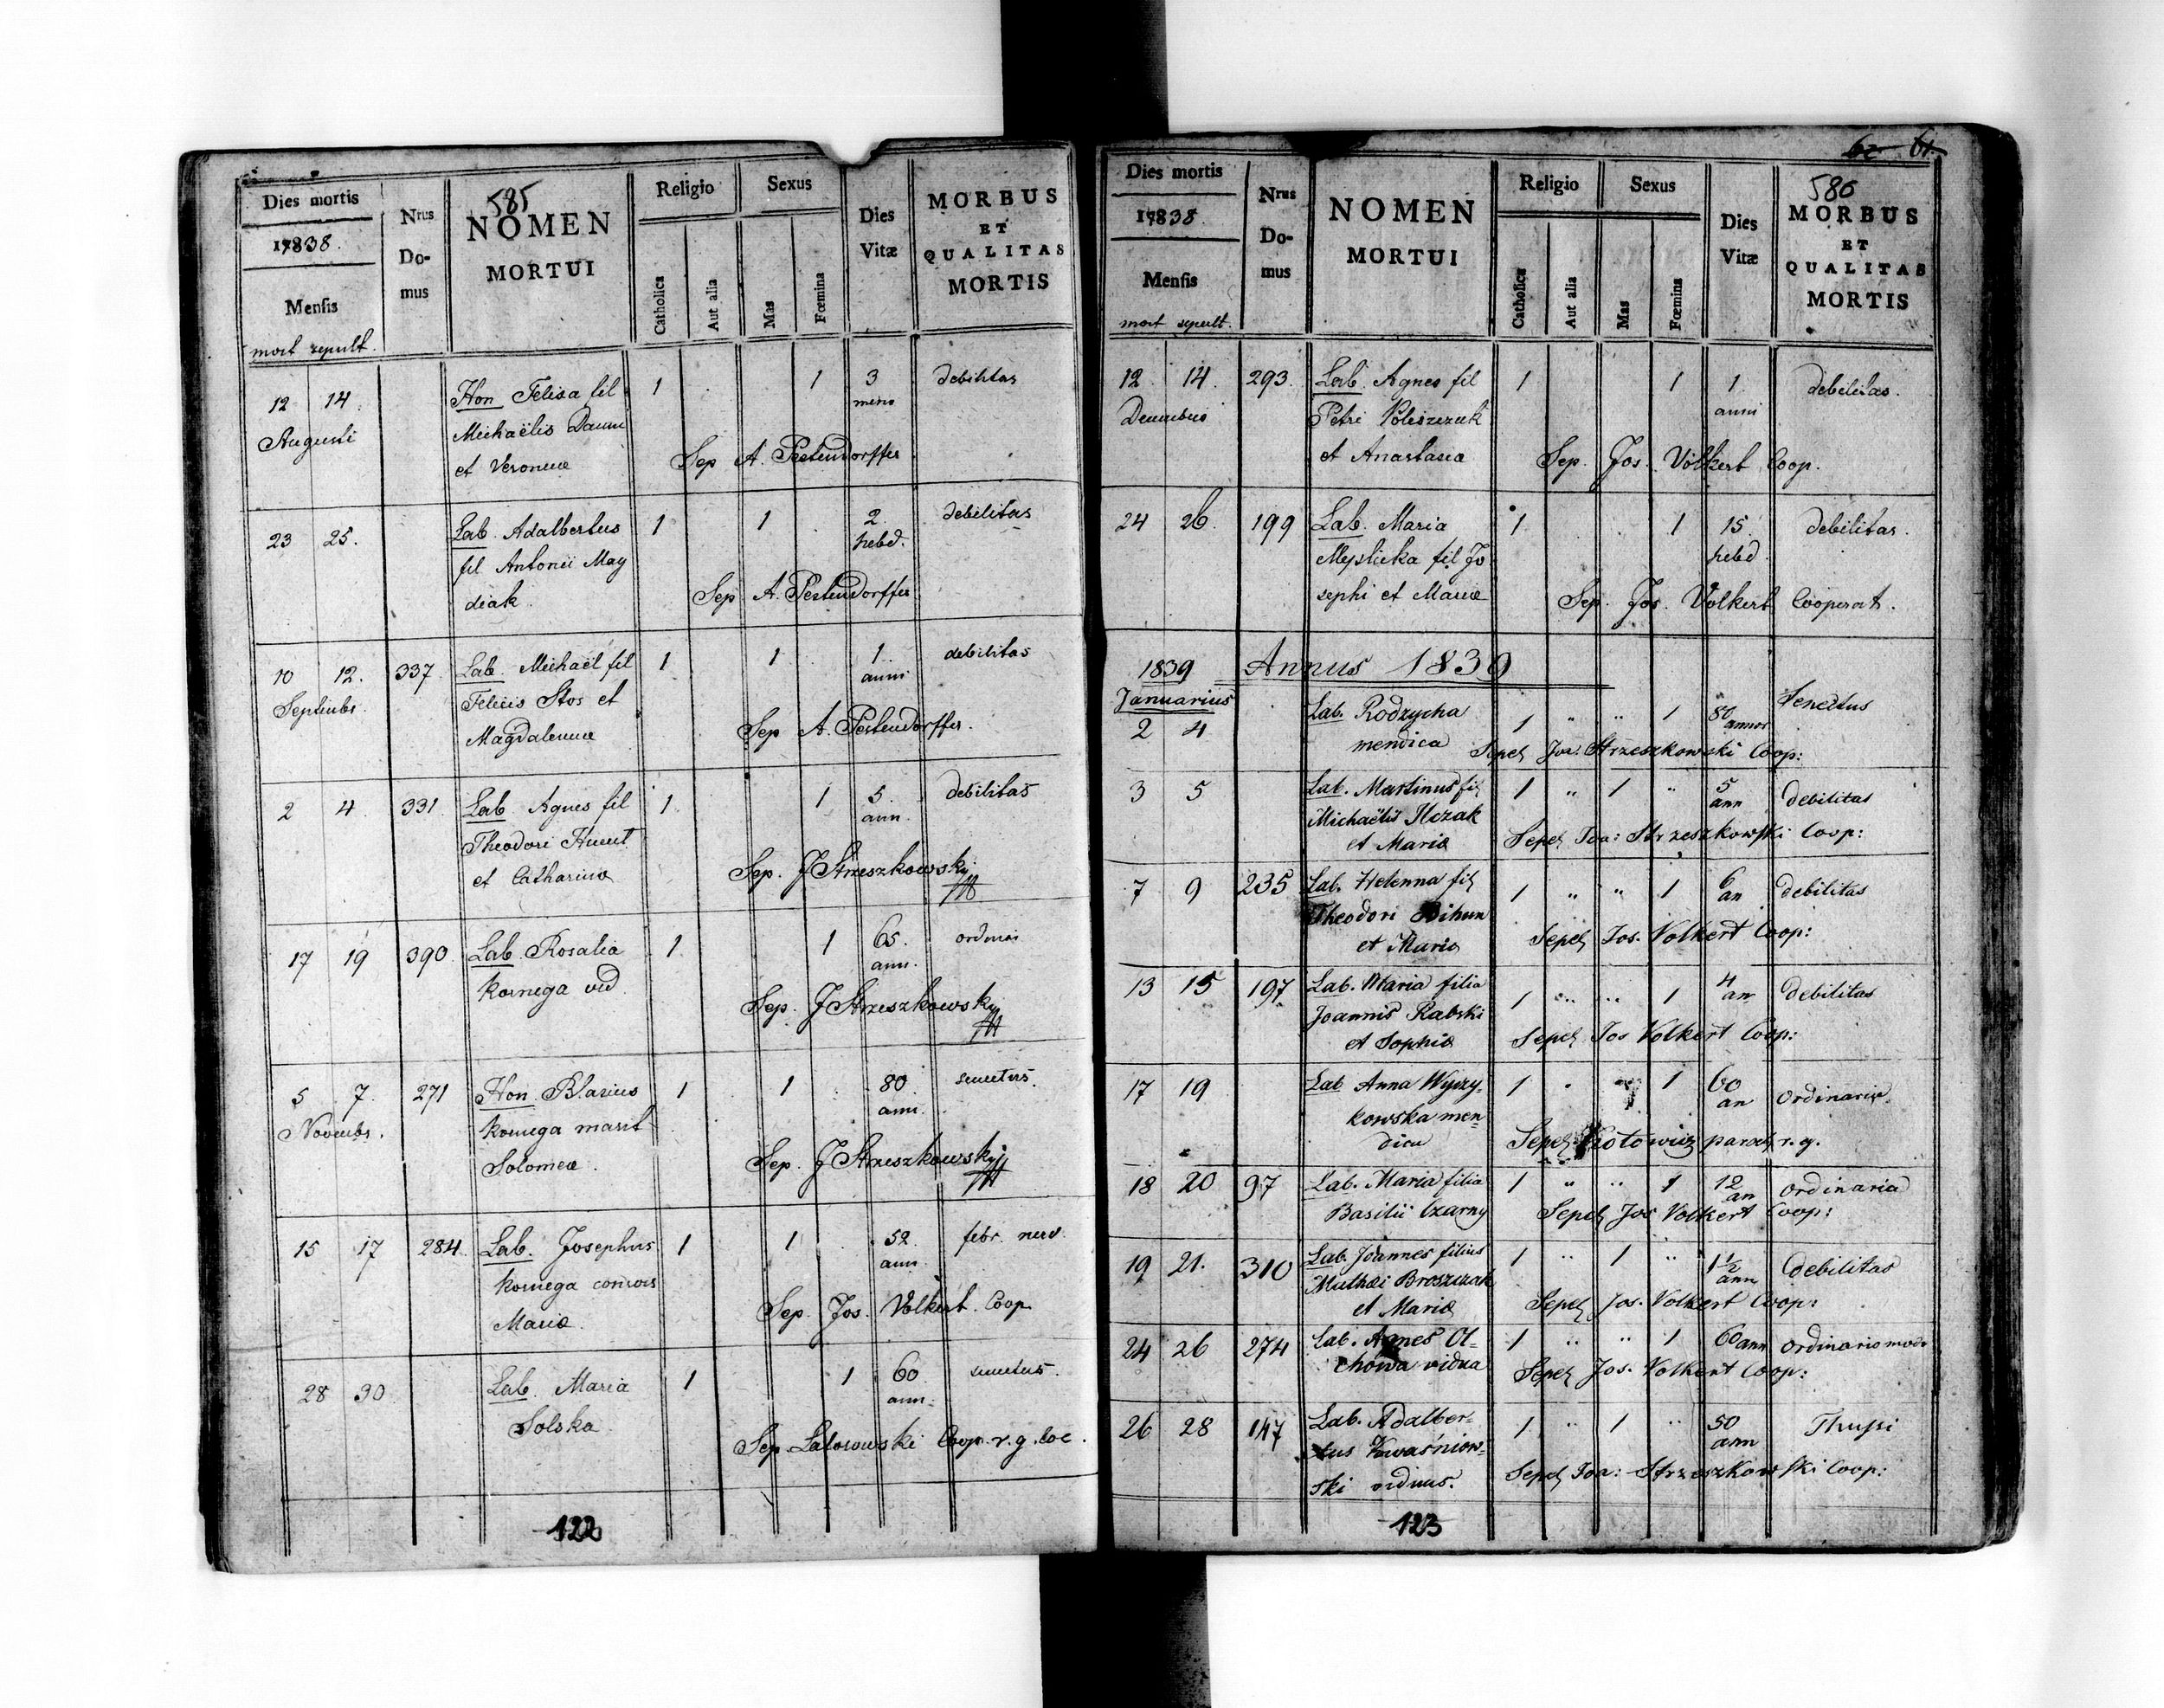 585
Dies mortis
Nrus Domus
NOMEN MORTUI
Religio
Catholica
Aut alia
Sexus
Mas
Fœmina
Dies Vitæ
MORBUS ET QUALITAS MORTIS
1838.
Mensis
mort sepult.
12 14. Hon Felisa fil 1 1 3 debilitas
Augusti Michaëlis Daum mens
et Veronicæ Sep A. Pestendorffer
23 25. Lab. Adalbertus 1 1 2 debilitas
fil Antonii May hebd.
diak. Sep A. Pestendorffer
10 12. 337 Lab. Michaël fil 1 1 1 debilitas
Septembr. Felicis Stos et anni
Magdalenæ Sep A. Pestendorffer.
2 4. 331 Lab Agnes fil 1 1 5. debilitas
Theodori ann.
et Catharinæ Sep. J Strzeszkowski
17 19 390 Lab. Rosalia 1 1 65. ordinar
Kornega vid. ann.
Sep. J Strzeszkowsky
5 7. 271 Hon. Blasius 1 1 80 senectus.
Novembr. Kornega marit anni.
Solomeæ. Sep. J Strzeszkowsky
15 17 284. Lab. Josephus 1 1 52. febr. nerv.
Kornega consors ann.
Mariæ. Sep. Jos. Volkert. Coop.
28 30 Lab. Maria 1 1 60 senectus.
Solska ann.
Sep. Coop. r. g. loc.
122
62 61
586
Dies mortis
Nrus Domus
NOMEN MORTUI
Religio
Catholica
Aut alia
Sexus
Mas
Fœmina
Dies Vitæ
MORBUS ET QUALITAS MORTIS
1838
Mensis
mort sepult.
12 14. 293. Lab. Agnes fil 1 1 1 debilitas.
Decembris Petri Poleszczuk anni
et Anastasiæ Sep. Jos. Völkert Coop.
24 26. 199 Lab. Maria 1 1 15. debilitas.
Myslicka fil Jo hebd.
sephi et Mariæ Sep. Jos. Volkert Cooperat.
1839 Annus 1839
Januarius Lab. Rodzycha 1 " " 1 80 annor Senectus
2 4 mendica Sepel Joa: Strzeszkowski Coop:
3 5 Lab. Martinus fil 1 " 1 " 5 ann debilitas
Michaëlis Ilczak
et Mariæ Sepel Joa: Strzeszkowski Coop:
7 9 235 Lab. Helenna fil 1 " " 1 6 an debilitas
Theodori Bihun
et Mariæ Sepel Jos. Volkert Coop:
13 15 197 Lab. Maria filia 1 " " 1 4 an debilitas
Joannis Rabski
et Sophiæ Sepel Jos Volkert Coop:
17 19 Lab Anna Wyrzy- 1 " " 1 60 an ordinaria
kowska men-
dica Sepel Kotowicz paroch. r. g.
18 20 97 Lab. Maria filia 1 " " 1 12 an ordinaria
Basilii Czarny Sepel Jos Volkert Coop:
19 21. 310 Lab. Joannes filius 1 " 1 " 1½ ann debilitas
Mathæi Broszczak
et Mariæ Sepel Jos. Volkert Coop:
24 26 274 Lab. Agnes Ol- 1 " " 1 60 ann ordinario modo
chowa vidua Sepel Jos. Volkert Coop:
26 28 147 Lab. Adalber- 1 " 1 " 50 ann Thussi
tus Kwaśniow-
ski viduus. Sepel Joa: Strzeszkowski Coop:
123